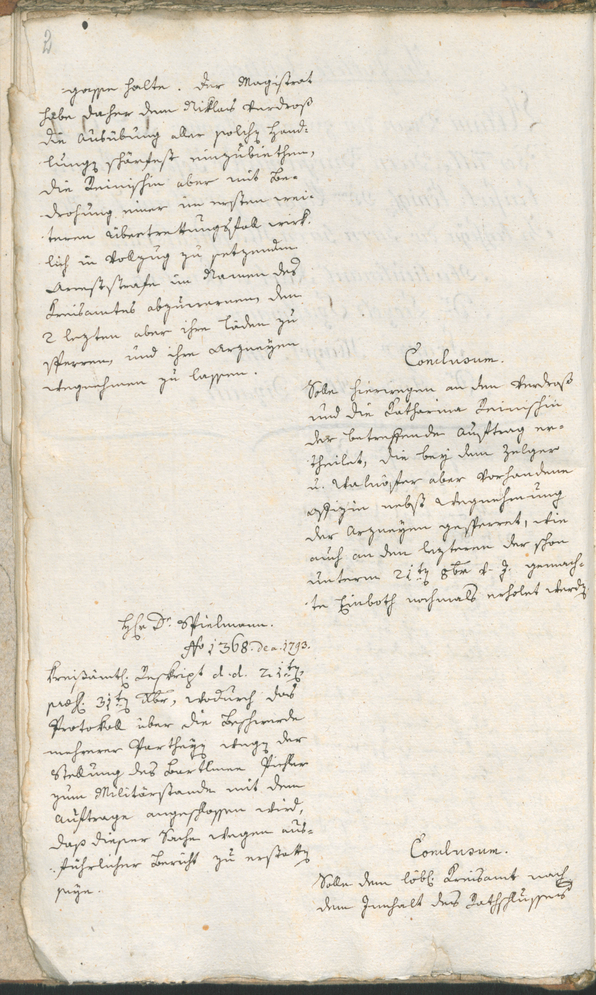 2
gasse halte. Der Magistrat
habe daher dem Niklas Verdroß
die Ausübung aller solchen Hand-
lungen schärfest einzubiethen,
die Reinischin aber mit Be-
drohung einer im ersten wei-
teren Übertrettungsfall wirk-
lich in Vollzug zu setzenden
Arreststrafe im Namen des
Kreisamtes abzuwarnen, den
2 lezten aber ihre Läden zu
sperren, und ihre Arzneyen
wegnehmen zu lassen.
Conclusum.
Solle hierwegen an den Verdroß
und die Katharina Reinischin
der betreffende Auftrag er-
theilet, die bey dem Zelger
u. aber vorhandene
Offizin nebst Wegnehmung
der Arzneyen gesperret, wie
auch an den lezteren der schon
unterm 21ten 8br v. J. gemach-
te Einboth nochmals erholet werden
Hr. Dr. Spielmann.
No 1368. de a. 1793.
Kreisämtl. Reskript d. d. 21ten
präs. 31ten Xbr, wodurch das
Protokoll über die Beschwerde
mehrerer Partheyen wegen der
Stellung des Bartlmee Pichler
zum Militärstande mit dem
Auftrage angeschlossen wird,
daß dieser Sache wegen aus-
führlicher Bericht zu erstatten
seye.
Conclusum.
Solle dem löbl. Kreisamt nach
dem Innhalt des Rathschlusses